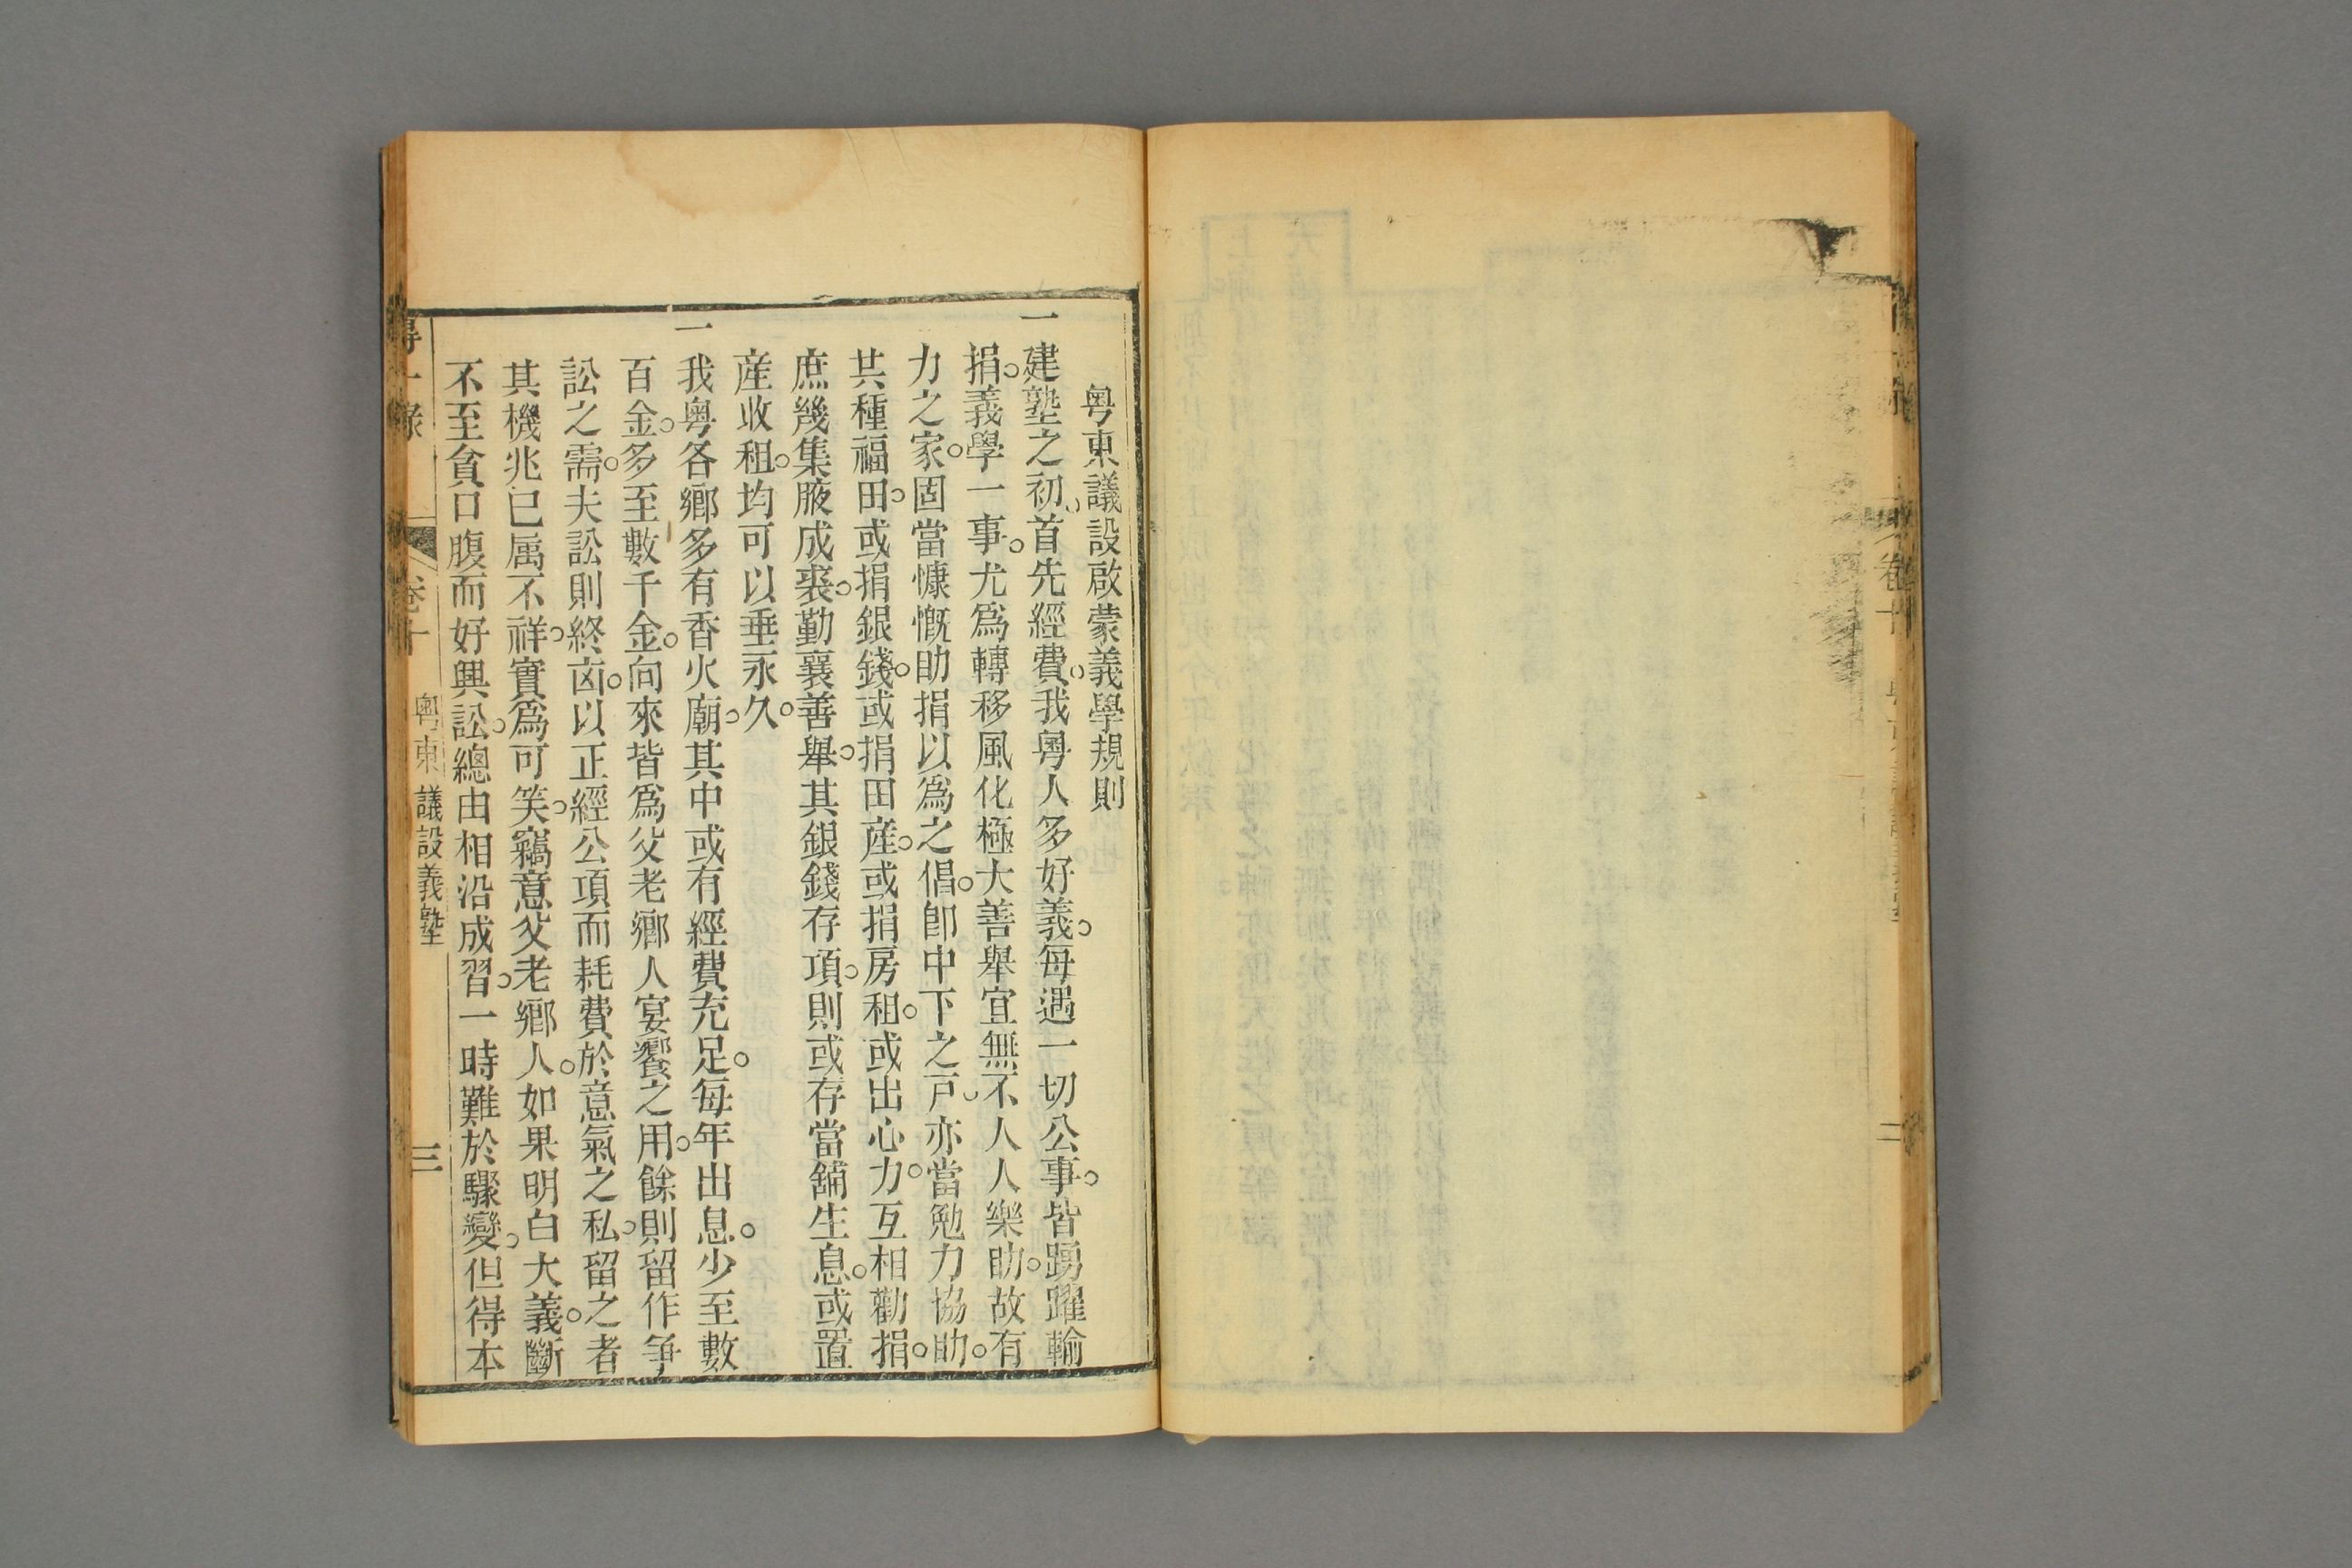 粤東議設啟蒙義學規則
一建塾之初首先經費。我粤人多好義。每遇一切公事。皆踴躍輸
捐。義學一事。尤爲轉移風化極大善舉宜無不人人樂助。故有
力之家。固當慷慨助捐以爲之倡。卽中下之戸亦當勉力協助。
共種福田。或捐銀錢。或捐田產。或捐房租。或出心力。互相勸捐。
庶幾集腋成裘。勤襄善舉。其銀錢存項。則或存當鋪生息。或置
產收租。均可以垂永久。
一我粤各鄉多有香火廟。其中或有經費充足。每年出息。少至數
百金。多至數千金。向來皆爲父老鄉人宴饗之用。餘則留作争
訟之需。夫訟則終凶。以正經公項而耗費於意氣之私。留之者
其機兆已属不祥。實爲可笑。竊意父老鄉人。如果明白大義。斷
不至貪口腹而好興訟。總由相沿成習。一時難於驟變。但得本
卷十
粤東議設義塾
三
卷十
二